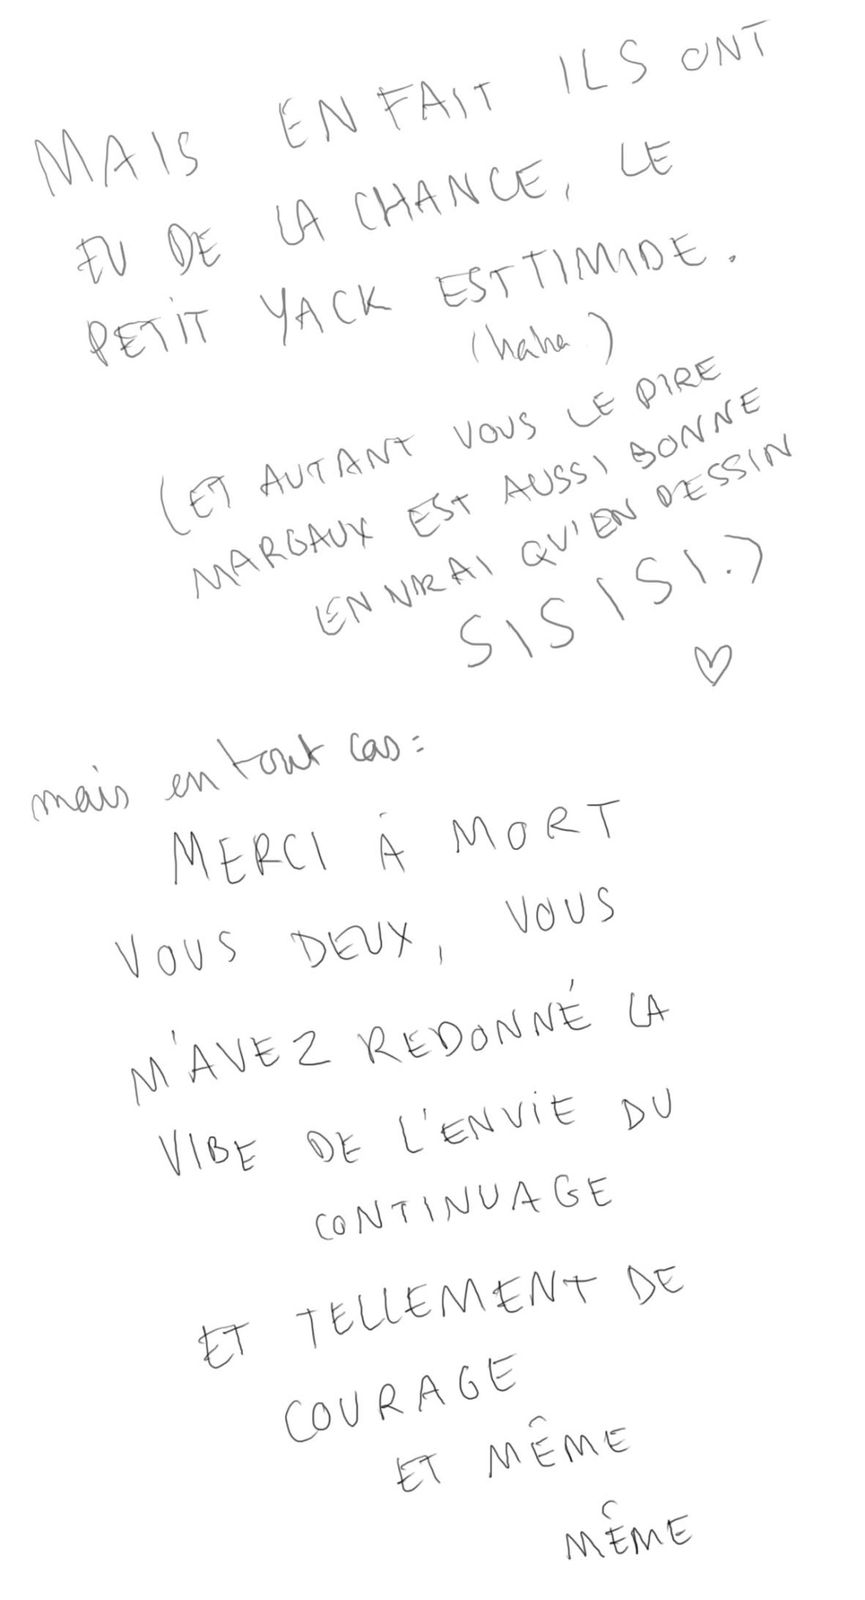 MAIS EN FAIT ILS ONT
EU DE LA CHANCE, LE
PETIT YACK EST TIMIDE.
(haha)
(ET AUTANT VOUS LE DIRE
MARGAUX EST AUSSI BONNE
EN VRAI QU'EN DESSIN
SISISI.)
♡
mais en tout cas:
MERCI À MORT
VOUS DEUX, VOUS
M'AVEZ REDONNÉ LA
VIBE DE L'ENVIE DU
CONTINUAGE
ET TELLEMENT DE
COURAGE
ET MÊME
MÊME